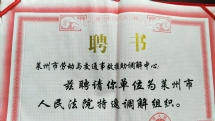 聘书
莱州市劳动与交通事故援助调解中心:
兹聘请你单位为莱州市
人民法院特邀调解组织。